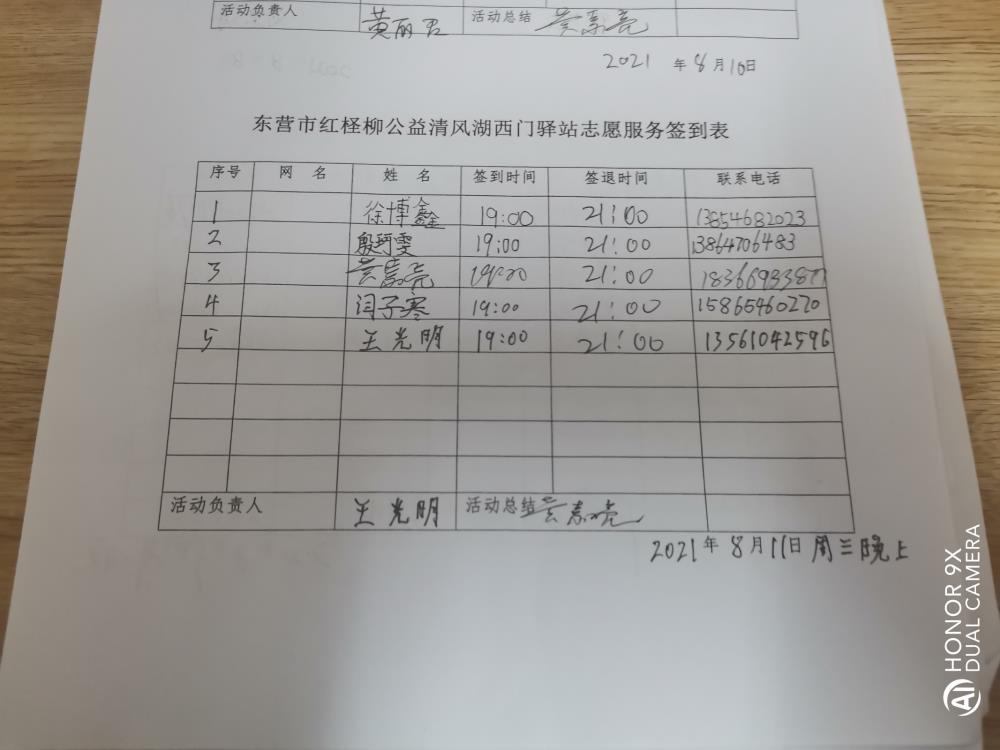 活动负责人 黄丽君 活动总结
2021 年 8 月 10 日
东营市红柽柳公益清风湖西门驿站志愿服务签到表
序号 网 名 姓 名 签到时间 签退时间 联系电话
1 徐博鑫 19:00 21:00 13854682023
2 殷珂雯 19:00 21:00 13864706483
3 19:00 21:00
4 闫子寒 19:00 21:00 15865460270
5 王光明 19:00 21:00 13561042596
活动负责人 王光明 活动总结
2021 年 8 月 11 日 周三晚上
HONOR 9X
DUAL CAMERA
AI